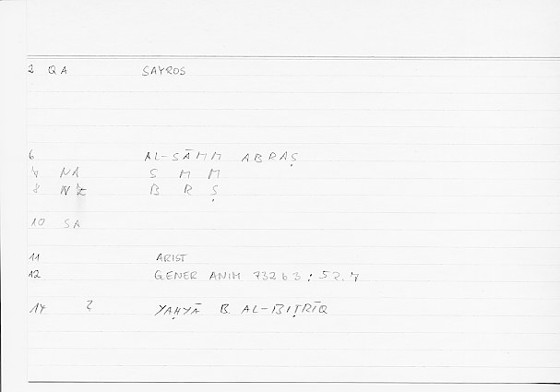 2 QA SAYROS
6 AL-SĀMM ABRAṢ
NA S M M
8 B R Ṣ
10 SA
11 ARIST
12 GENER ANIM 732 b 3 : 52.7
14 2 YAḤYĀ B. AL-BIṬRĪQ